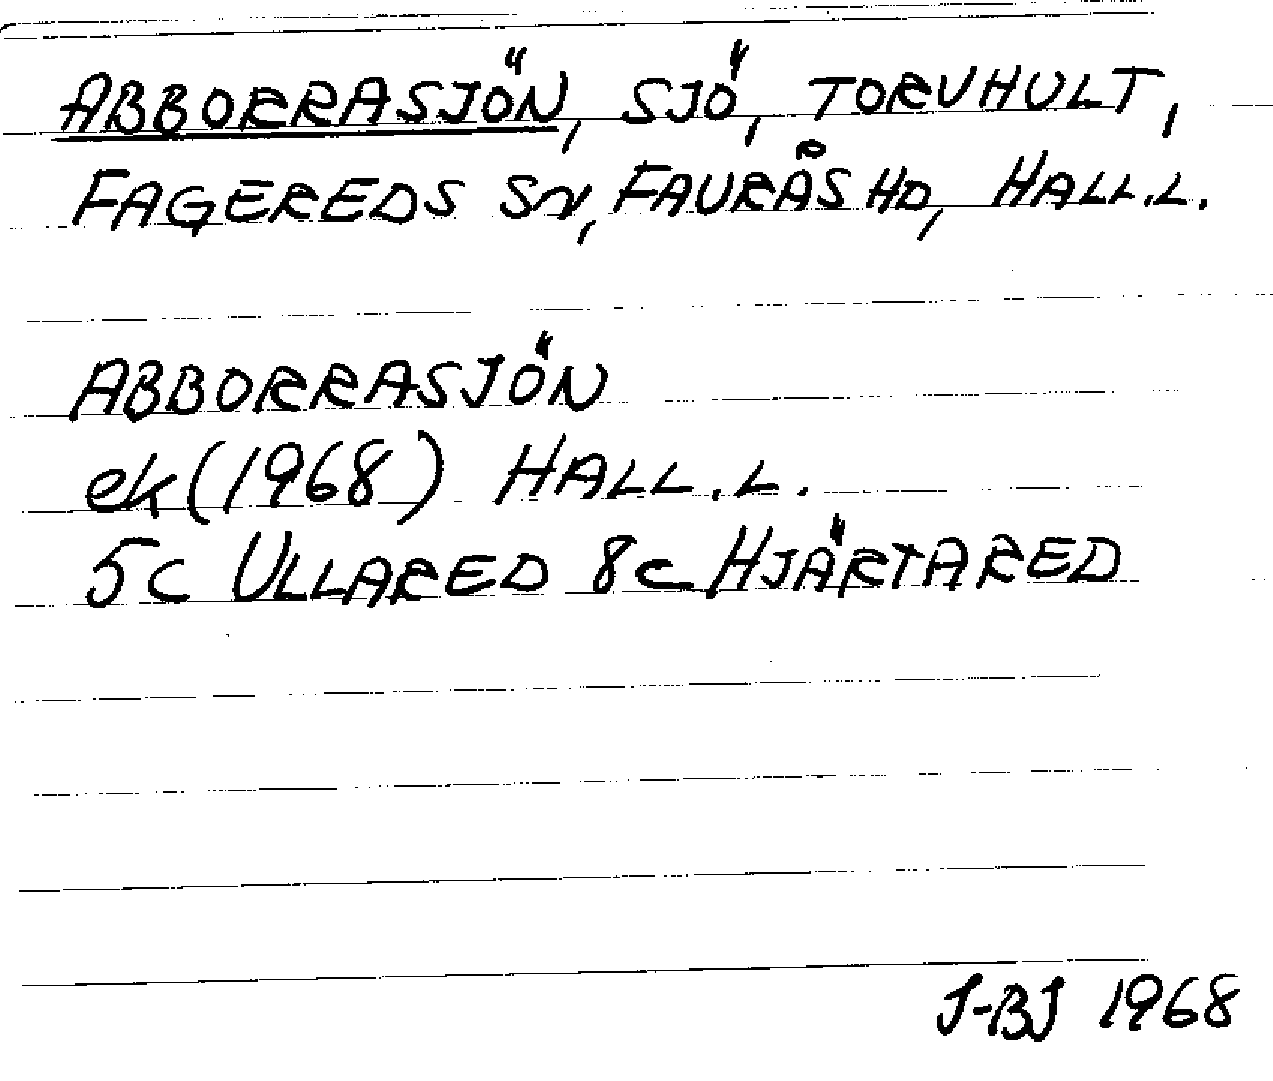 ABBORRASJÖN, SJÖ, TORVHULT,
FAGEREDS SN, FAURÅS HD, HALL.L.
ABBORRASJÖN
ek (1968) HALL.L.
5c ULLARED 8c HJÄRTARED
J-BJ 1968